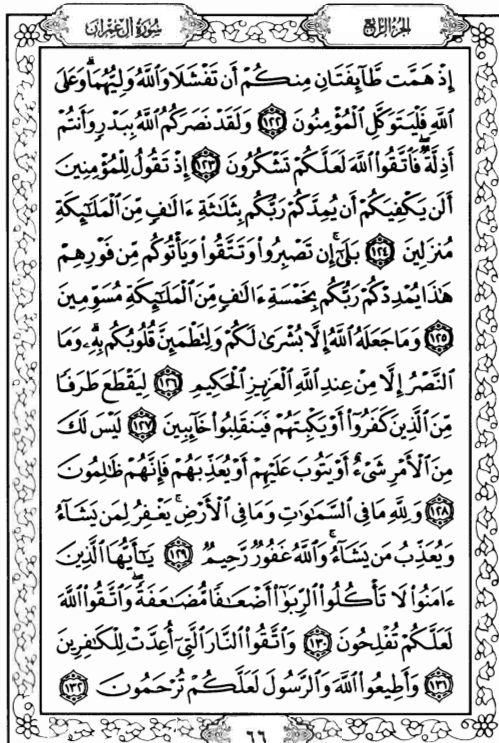 سُورَةُ آلِ عِمْرَان
الجُزءُ الرَّابِع
إِذْ هَمَّت طَّآئِفَتَانِ مِنكُمْ أَن تَفْشَلَا وَٱللَّهُ وَلِيُّهُمَاۗ وَعَلَى
ٱللَّهِ فَلْيَتَوَكَّلِ ٱلْمُؤْمِنُونَ ١٢٢ وَلَقَدْ نَصَرَكُمُ ٱللَّهُ بِبَدْرٍ وَأَنتُمْ
أَذِلَّةٌۖ فَٱتَّقُوا۟ ٱللَّهَ لَعَلَّكُمْ تَشْكُرُونَ ١٢٣ إِذْ تَقُولُ لِلْمُؤْمِنِينَ
أَلَن يَكْفِيَكُمْ أَن يُمِدَّكُمْ رَبُّكُم بِثَلَٰثَةِ ءَالَٰفٍ مِّنَ ٱلْمَلَٰٓئِكَةِ
مُنزَلِينَ ١٢٤ بَلَىٰٓۚ إِن تَصْبِرُوا۟ وَتَتَّقُوا۟ وَيَأْتُوكُم مِّن فَوْرِهِمْ
هَٰذَا يُمْدِدْكُمْ رَبُّكُم بِخَمْسَةِ ءَالَٰفٍ مِّنَ ٱلْمَلَٰٓئِكَةِ مُسَوِّمِينَ
١٢٥ وَمَا جَعَلَهُ ٱللَّهُ إِلَّا بُشْرَىٰ لَكُمْ وَلِتَطْمَئِنَّ قُلُوبُكُم بِهِۦۗ وَمَا
ٱلنَّصْرُ إِلَّا مِنْ عِندِ ٱللَّهِ ٱلْعَزِيزِ ٱلْحَكِيمِ ١٢٦ لِيَقْطَعَ طَرَفًا
مِّنَ ٱلَّذِينَ كَفَرُوٓا۟ أَوْ يَكْبِتَهُمْ فَيَنقَلِبُوا۟ خَآئِبِينَ ١٢٧ لَيْسَ لَكَ
مِنَ ٱلْأَمْرِ شَىْءٌ أَوْ يَتُوبَ عَلَيْهِمْ أَوْ يُعَذِّبَهُمْ فَإِنَّهُمْ ظَٰلِمُونَ
١٢٨ وَلِلَّهِ مَا فِى ٱلسَّمَٰوَٰتِ وَمَا فِى ٱلْأَرْضِۚ يَغْفِرُ لِمَن يَشَآءُ
وَيُعَذِّبُ مَن يَشَآءُۚ وَٱللَّهُ غَفُورٌ رَّحِيمٌ ١٢٩ يَٰٓأَيُّهَا ٱلَّذِينَ
ءَامَنُوا۟ لَا تَأْكُلُوا۟ ٱلرِّبَوٰٓا۟ أَضْعَٰفًا مُّضَٰعَفَةًۖ وَٱتَّقُوا۟ ٱللَّهَ
لَعَلَّكُمْ تُفْلِحُونَ ١٣٠ وَٱتَّقُوا۟ ٱلنَّارَ ٱلَّتِىٓ أُعِدَّتْ لِلْكَٰفِرِينَ
١٣١ وَأَطِيعُوا۟ ٱللَّهَ وَٱلرَّسُولَ لَعَلَّكُمْ تُرْحَمُونَ ١٣٢
٦٦